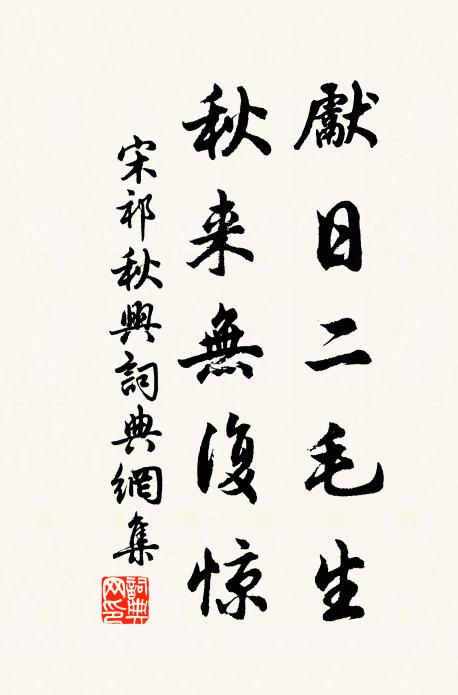 獻日二毛生
秋来無復惊
宋祁秋興詞典網集
詞典網印